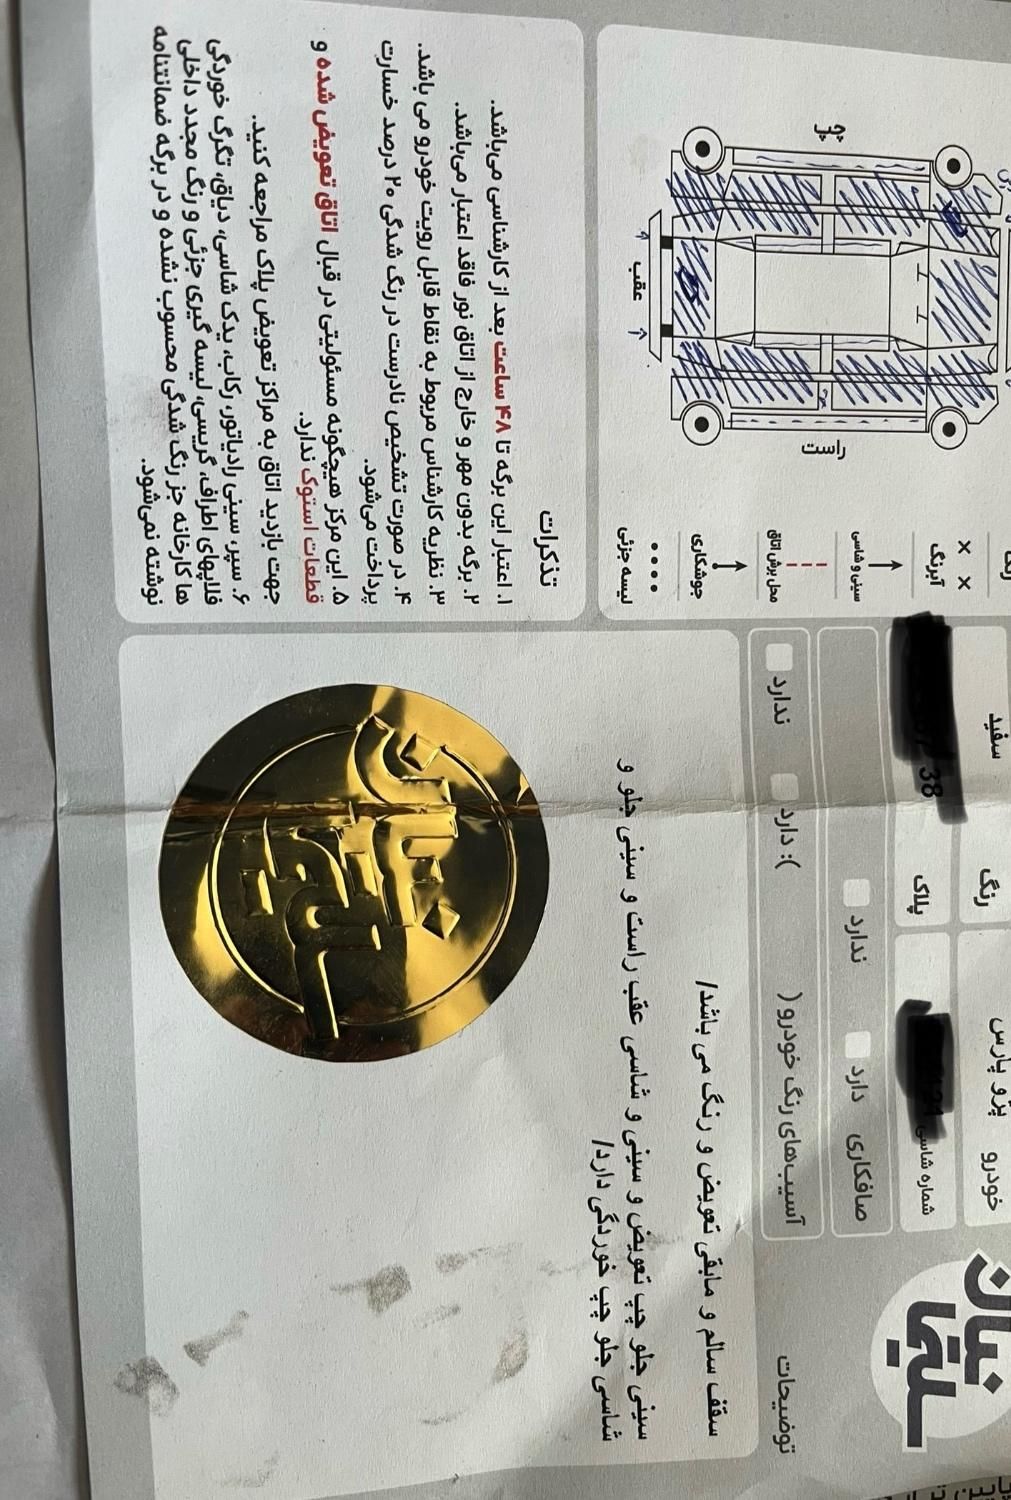 سلیمانیان
خودرو
پژو پارس
رنگ
سفید
شماره شاسی
پلاک
38
صافکاری
دارد
ندارد
آسیب‌های رنگ خودرو (
): دارد
ندارد
توضیحات
سقف سالم و مابقی تعویض و رنگ می باشد/
سینی جلو چپ تعویض و سینی و شاسی عقب راست و سینی جلو و
شاسی جلو چپ خوردگی دارد/
چپ
راست
عقب
رنگ
× ×
آبرنگ
سینی و شاسی
محل برش اتاق
جوشکاری
لیسه جزئی
تذکرات
۱. اعتبار این برگه تا ۴۸ ساعت بعد از کارشناسی می‌باشد.
۲. برگه بدون مهر و خارج از اتاق نور فاقد اعتبار می‌باشد.
۳. نظریه کارشناس مربوط به نقاط قابل رویت خودرو می باشد.
۴. در صورت تشخیص نادرست در رنگ شدگی ۲۰ درصد خسارت
پرداخت می‌شود.
۵. این مرکز هیچگونه مسئولیتی در قبال اتاق تعویض شده و
قطعات استوک ندارد.
جهت بازدید اتاق به مراکز تعویض پلاک مراجعه کنید.
۶. سپر، سینی رادیاتور، رکاب، یدک شاسی، دیاق، تگرگ خوردگی
قلاپهای اطراف، گریسی، لیسه گیری جزئی و رنگ مجدد داخلی
ها کارخانه جز رنگ شدگی محسوب نشده و در برگه ضمانتنامه
نوشته نمی‌شود.